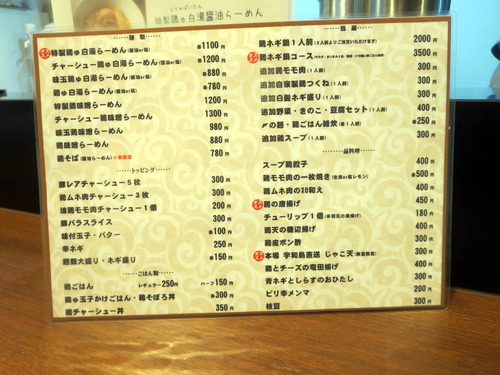 とりぱいたん
特製鶏ゅ白湯醤油らーめん
……麺 類……
特製鶏ゅ白湯らーめん(醤油or塩) 1100円
チャーシュー鶏ゅ白湯らーめん(醤油or塩) 1200円
味玉鶏ゅ白湯らーめん(醤油or塩) 880円
鶏ゅ白湯らーめん(醤油or塩) 780円
特製鶏味噌らーめん 1200円
チャーシュー鶏味噌らーめん 1300円
味玉鶏味噌らーめん 980円
鶏味噌らーめん 880円
鶏そば(醤油らーめん) 780円
……トッピング……
豚レアチャーシュー5枚 300円
鶏ムネ肉チャーシュー3枚 300円
塊鶏モモ肉チャーシュー1個 200円
豚バラスライス 300円
味付玉子・バター 100円
辛ネギ 250円
麺類大盛り・ネギ盛り 150円
……ごはん類……
鶏ごはん レギュラー250円 ハーフ150円
鶏ゅ玉子かけごはん・鶏そぼろ丼 300円
鶏チャーシュー丼 350円
……鶏 鍋……
鶏ネギ鍋1人前(2人前よりご注文いただけます) 2000円
鶏ネギ鍋コース 3500円
追加鶏モモ肉(1人前) 300円
追加自家製鶏つくね(1人前) 300円
追加白髪ネギ盛り(1人前) 300円
追加野菜・きのこ・豆腐セット(1人前) 400円
〆の麺・鶏ごはん雑炊(各1人前) 250円
追加鶏スープ(1人前) 300円
……一品料理……
スープ鶏餃子 400円
鶏モモ肉の一枚焼き 500円
鶏ムネ肉のXO和え 400円
鶏の唐揚げ 450円
チューリップ1個(手羽元の唐揚げ) 180円
鶏天の磯辺揚げ 400円
鶏皮ポン酢 300円
本場 宇和島直送 じゃこ天(数量限定) 300円
鶏とチーズの竜田揚げ 450円
青ネギとしらすのおひたし 300円
ピリ辛メンマ 300円
枝豆 300円